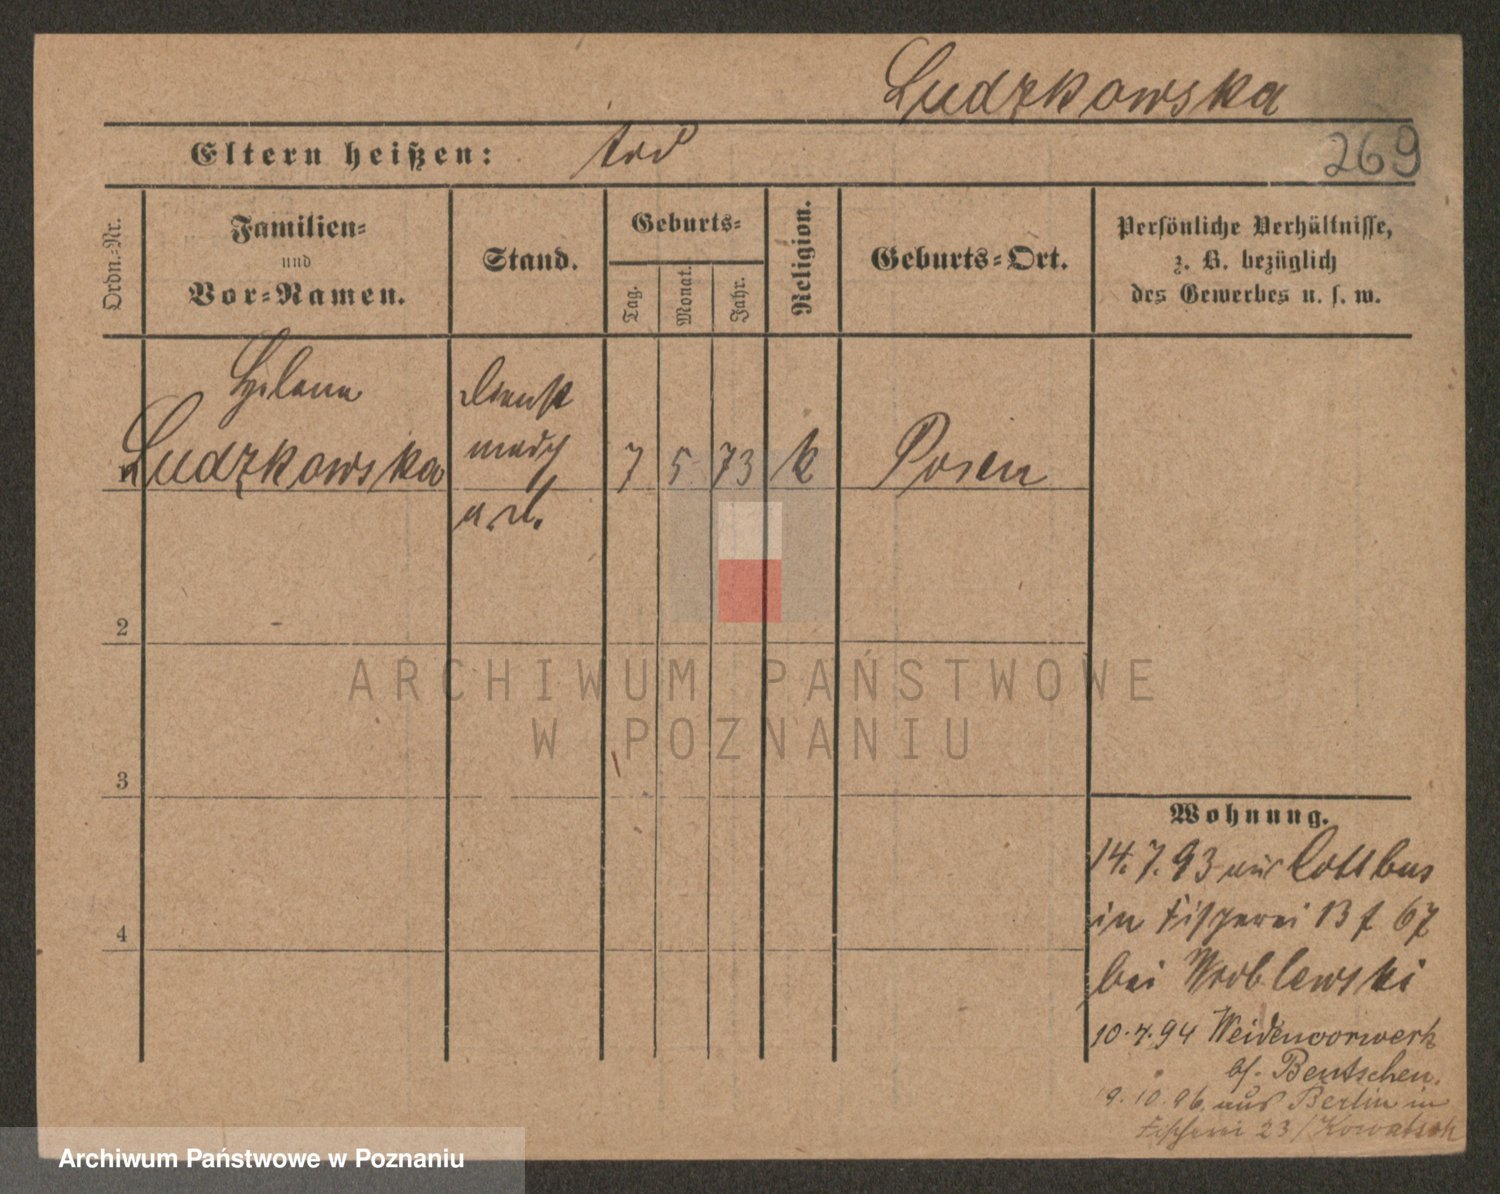 Ludzkowska
Eltern heißen: tod
269
Ordn.-Nr.
Familien-
und
Vor-Namen.
Stand.
Geburts-
Tag.
Monat.
Jahr.
Religion.
Geburts-Ort.
Persönliche Verhältnisse,
z. B. bezüglich
des Gewerbes u. s. w.
Helena
Ludzkowska
Dienst
mdch
7 5 73 k Posen
2
3
4
Wohnung.
14.7.93 aus Cottbus
in Fischerei 13 f 67
bei Wroblewski
10.4.94 Weidenvorwerk
b/. Bentschen.
19.10.96 aus Berlin in
Fischerei 23 / Kowalsk
ARCHIWUM PAŃSTWOWE
W POZNANIU
Archiwum Państwowe w Poznaniu